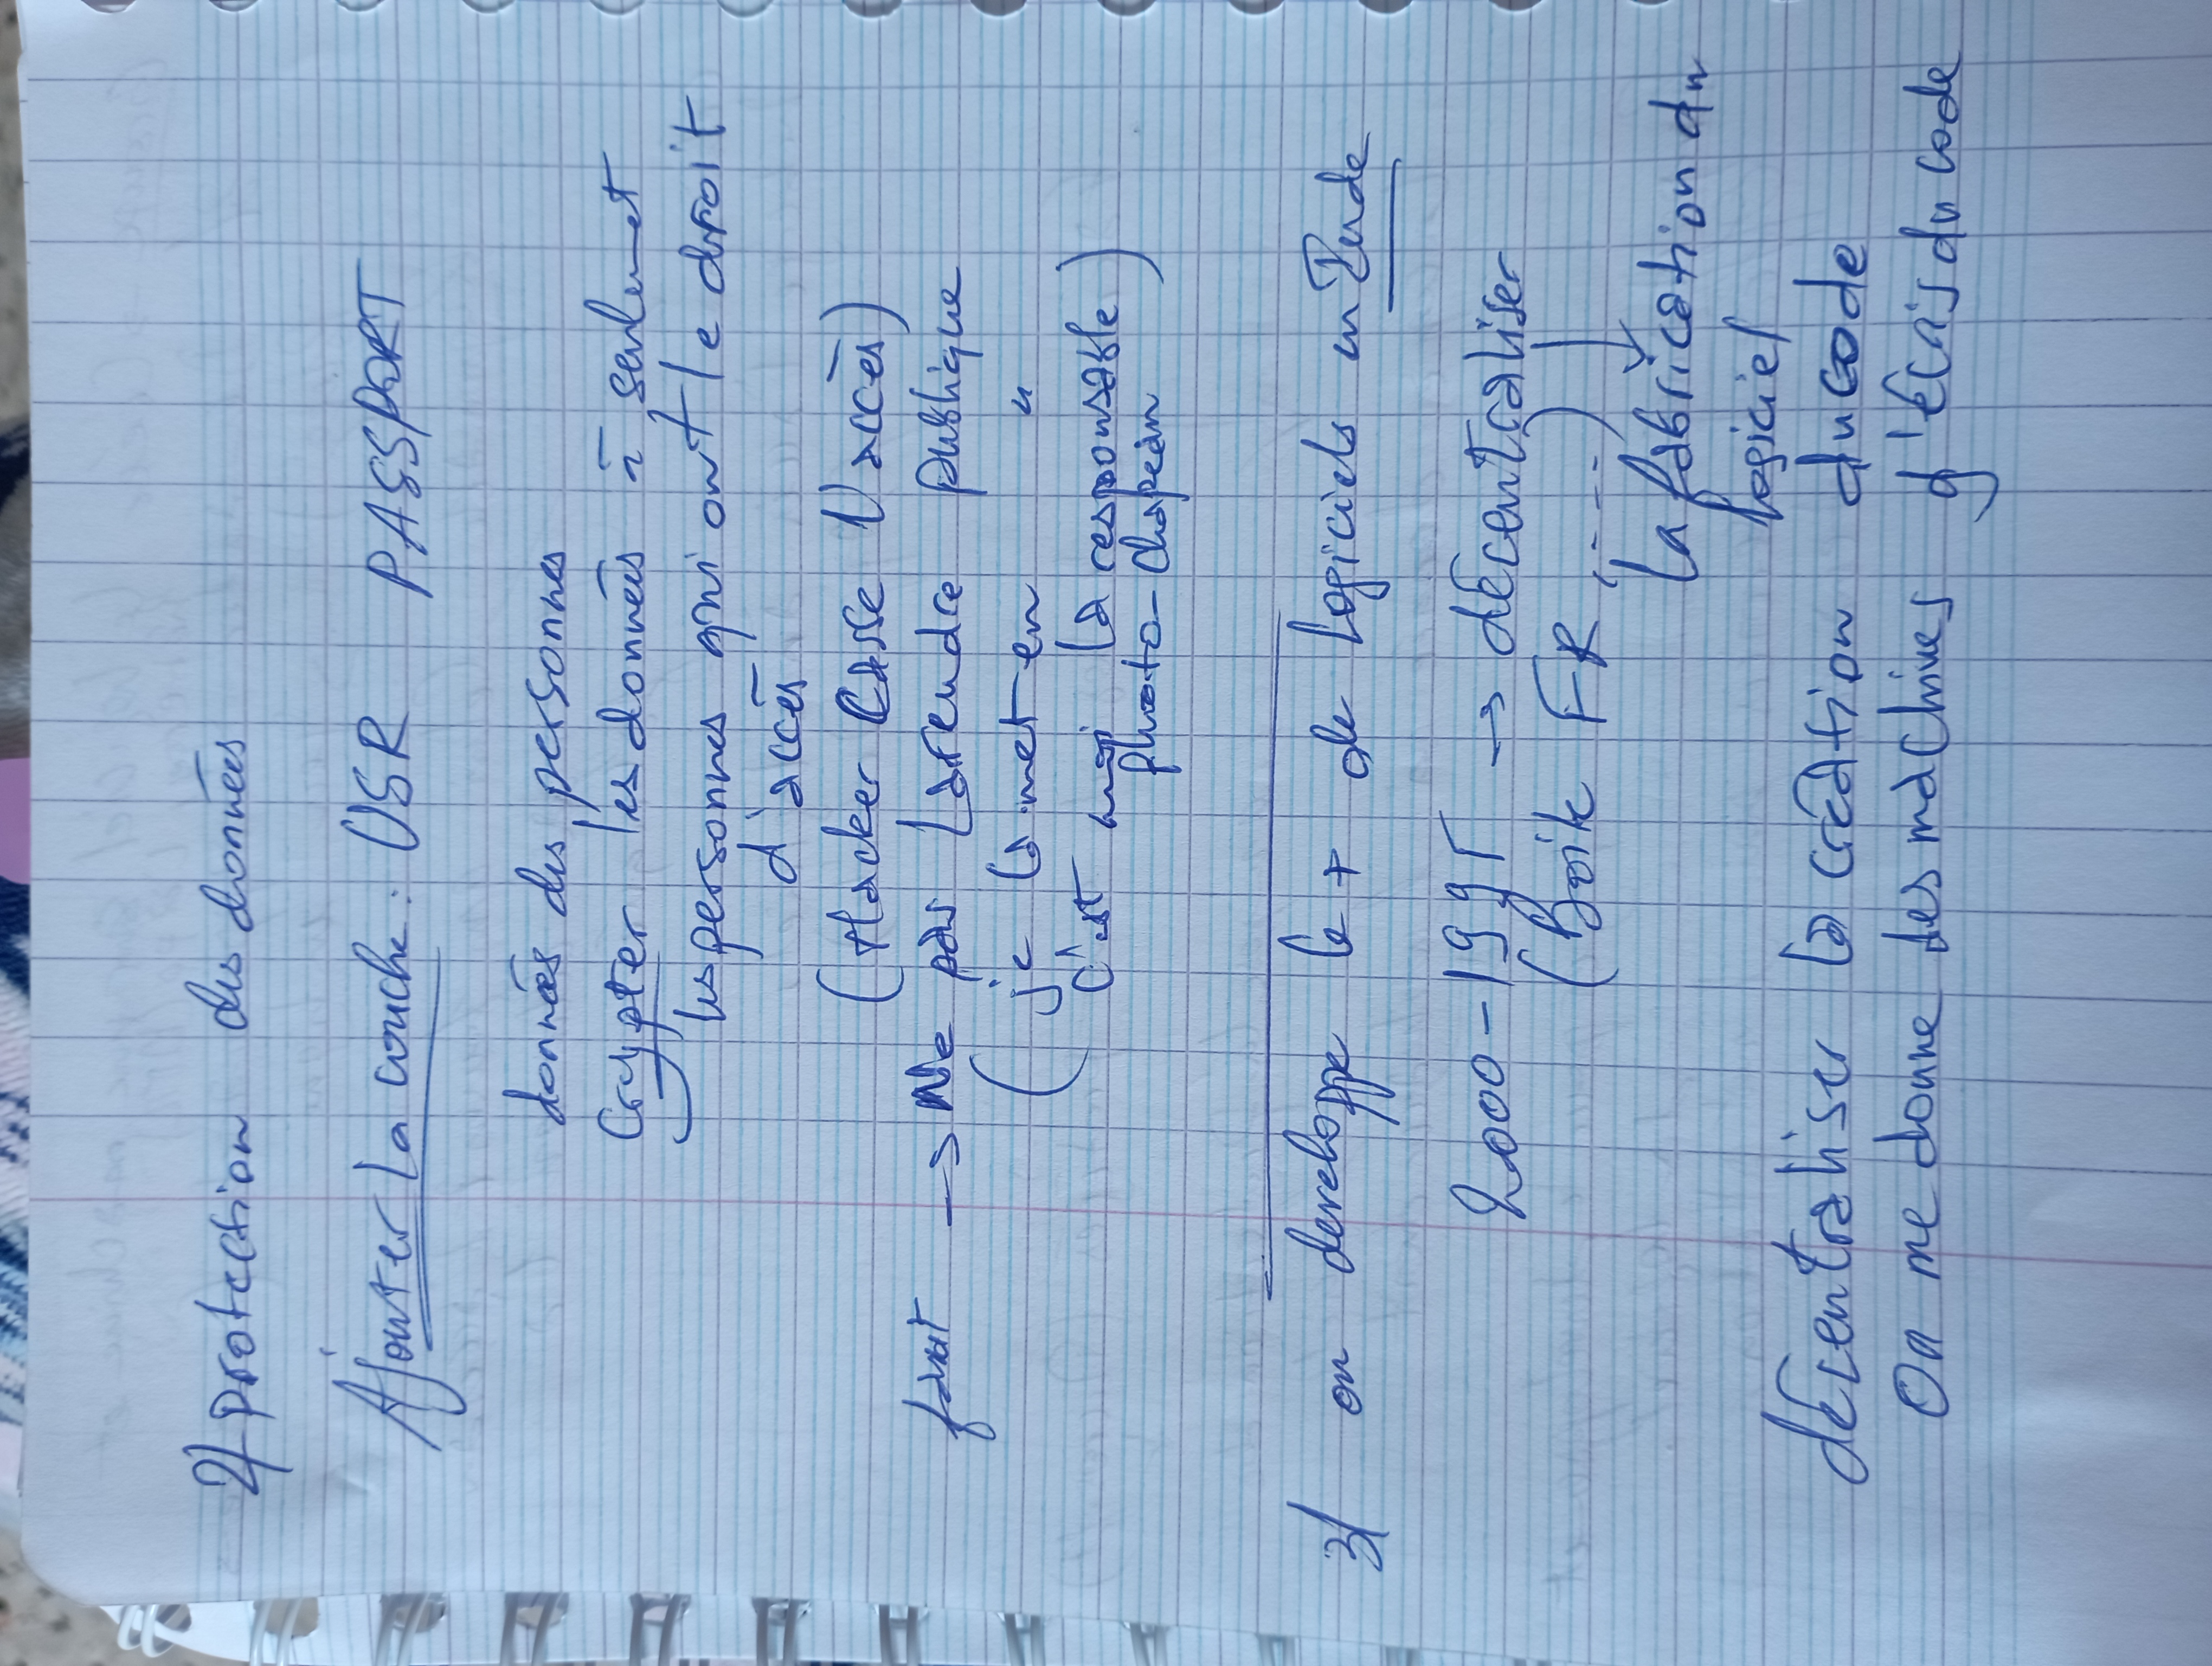 2/ protection des données
Ajouter la couche : USR PASSPORT
données des personnes
Crypter les données à seulemet
les personnes qui ont le droit
d'accès
(Hacker Casse l'accès)
faut → Ne pas la rendre publique
( je la met en "
c'est moi la responsable )
photo - chapeau
3/ on developpe le + de logiciels en Inde
2000 - 1995 → décentraliser
(Boite FR , ----)
la fabrication du
logiciel
décentraliser la création du code
On me donne des machines j'écris du code